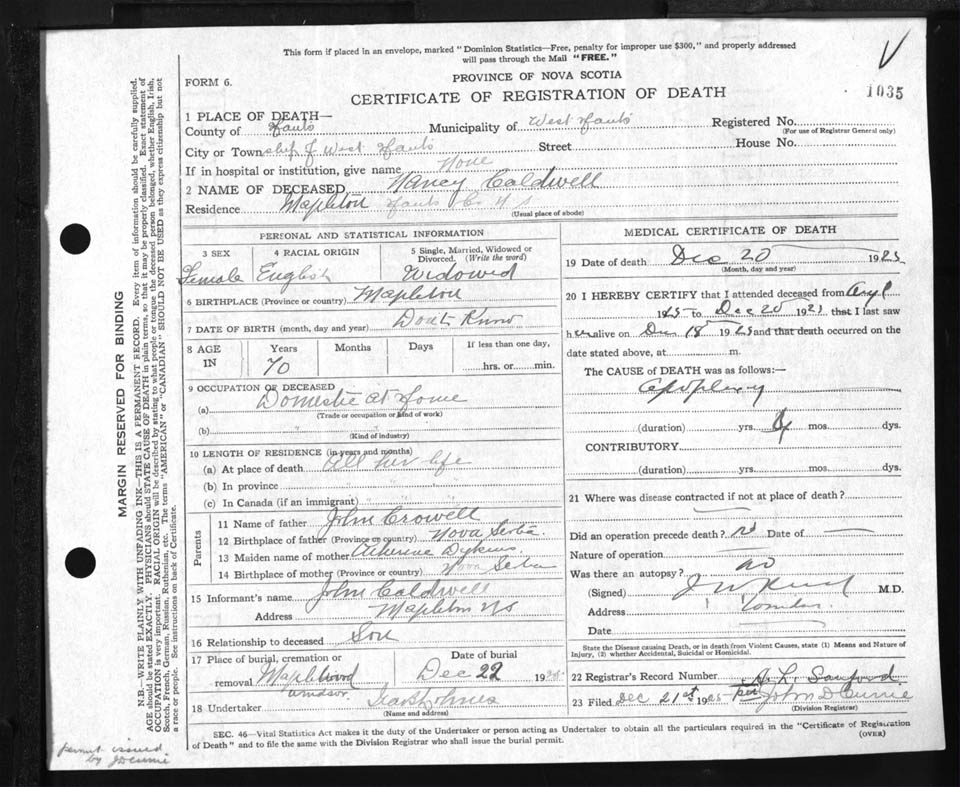 This form if placed in an envelope, marked "Dominion Statistics—Free, penalty for improper use $300," and properly addressed
will pass through the Mail "FREE."
FORM 6.
PROVINCE OF NOVA SCOTIA
CERTIFICATE OF REGISTRATION OF DEATH
1035
1 PLACE OF DEATH—
County of Hants Municipality of West Hants Registered No.
(For use of Registrar General only)
City or Township of West Hants Street House No.
If in hospital or institution, give name None
2 NAME OF DECEASED Nancy Caldwell
Residence Mapleton Hants Co N S
(Usual place of abode)
PERSONAL AND STATISTICAL INFORMATION
3 SEX 4 RACIAL ORIGIN 5 Single, Married, Widowed or
Divorced. (Write the word)
Female English Widowed
6 BIRTHPLACE (Province or country) Mapleton
7 DATE OF BIRTH (month, day and year) Dont Know
8 AGE IN Years Months Days If less than one day,
70 hrs. or min.
9 OCCUPATION OF DECEASED
(a) Domestic at Home
(Trade or occupation or kind of work)
(b)
(Kind of industry)
10 LENGTH OF RESIDENCE (in years and months)
(a) At place of death All her life
(b) In province
(c) In Canada (if an immigrant)
Parents
11 Name of father John Crowell
12 Birthplace of father (Province or country) Nova Scotia
13 Maiden name of mother Dykens
14 Birthplace of mother (Province or country) Nova Scotia
15 Informant's name John Caldwell
Address Mapleton NS
16 Relationship to deceased Son
17 Place of burial, cremation or Date of burial
removal Maplewood Dec 22 19
Windsor
18 Undertaker
(Name and address)
MEDICAL CERTIFICATE OF DEATH
19 Date of death Dec 20 1925
(Month, day and year)
20 I HEREBY CERTIFY that I attended deceased from
to Dec 20 1925, that I last saw
her alive on Dec 18 1925 and that death occurred on the
date stated above, at m.
The CAUSE OF DEATH was as follows:—
Apoplexy
(duration) yrs. mos. dys.
CONTRIBUTORY
(duration) yrs. mos. dys.
21 Where was disease contracted if not at place of death?
Did an operation precede death? Date of
Nature of operation
Was there an autopsy? no
(Signed) M.D.
Address
Date
State the Disease Causing Death, or in death from Violent Causes, state (1) Means and Nature of
Injury, (2) whether Accidental, Suicidal or Homicidal.
22 Registrar's Record Number
23 Filed Dec 21st 1925 per John D Currie
(Division Registrar)
SEC. 46—Vital Statistics Act makes it the duty of the Undertaker or person acting as Undertaker to obtain all the particulars required in the "Certificate of Registration
of Death" and to file the same with the Division Registrar who shall issue the burial permit.
(OVER)
MARGIN RESERVED FOR BINDING
N.B.—WRITE PLAINLY WITH UNFADING INK—THIS IS A PERMANENT RECORD. Every item of information should be carefully supplied.
AGE should be stated EXACTLY. PHYSICIANS should STATE CAUSE OF DEATH in plain terms, so that it may be properly classified. Exact statement of
OCCUPATION is very important. RACIAL ORIGIN will be described by stating to what people or tongue the deceased person belonged, whether English, Irish,
Scotch, French, German, Russian, Ruthenian, etc. The terms "AMERICAN" or "CANADIAN" SHOULD NOT BE USED as they express citizenship but not
a race or people. See instructions on back of Certificate.
permit issued
by J D Currie